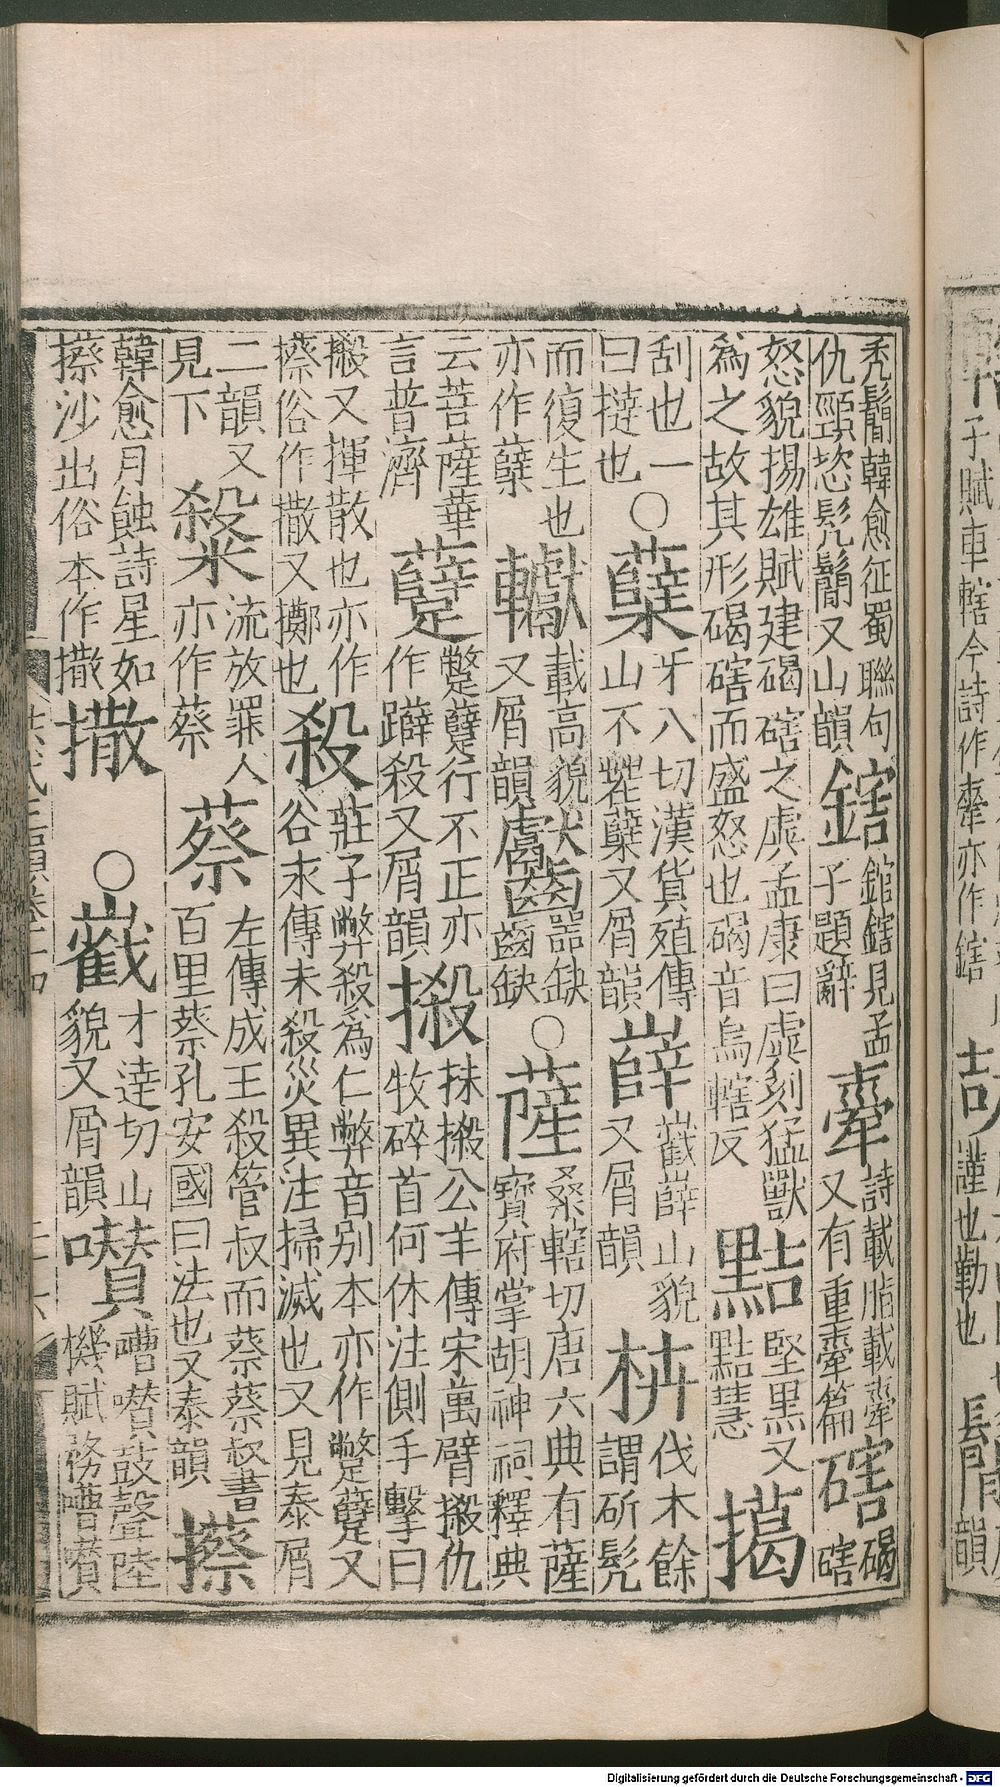 子賦車轄今詩作舝亦作鎋
謹也勤也
禿鬜韓愈征蜀聯句
仇頸恣髡鬜又山韻
鎋
錧鎋見孟
子題辭
舝
詩載脂載舝
又有車舝篇
磍
碣
磍
怒貌揚雄賦建碣磍之虡孟康曰虡刻猛獸
為之故其形碣磍而盛怒也碣音烏轄反
黠
堅黑又
黠慧
擖
刮也一
曰撻也
○
蘖
牙八切漢貨殖傳
山不茬蘖又屑韻
嶭
巀嶭山貌
又屑韻
枿
伐木餘
謂斫髡
而復生也
亦作蘖
載高貌
又屑韻
器缺
齒缺
○
薩
桑轄切唐六典有薩
寶府掌胡神祠釋典
云菩薩華
言普濟
躠
蹩躠行不正亦
作躃殺又屑韻
摋
抹摋公羊傳宋萬臂摋仇
牧碎首何休注側手擊曰
摋又揮散也亦作
攃俗作撒又擲也
殺
莊子弊殺為仁弊音別本亦作蹩躠又
谷永傳末殺災異注掃滅也又見泰屑
二韻又
見下
𥻦
流放罪人
亦作蔡
蔡
左傳成王殺管叔而蔡蔡叔書
百里蔡孔安國曰法也又泰韻
攃
韓愈月蝕詩星如
攃沙出俗本作撒
撒
○
巀
才達切山
貌又屑韻
囋
嘈囋鼓聲陸
機賦務嘈囋
Digitalisierung gefördert durch die Deutsche Forschungsgemeinschaft - DFG